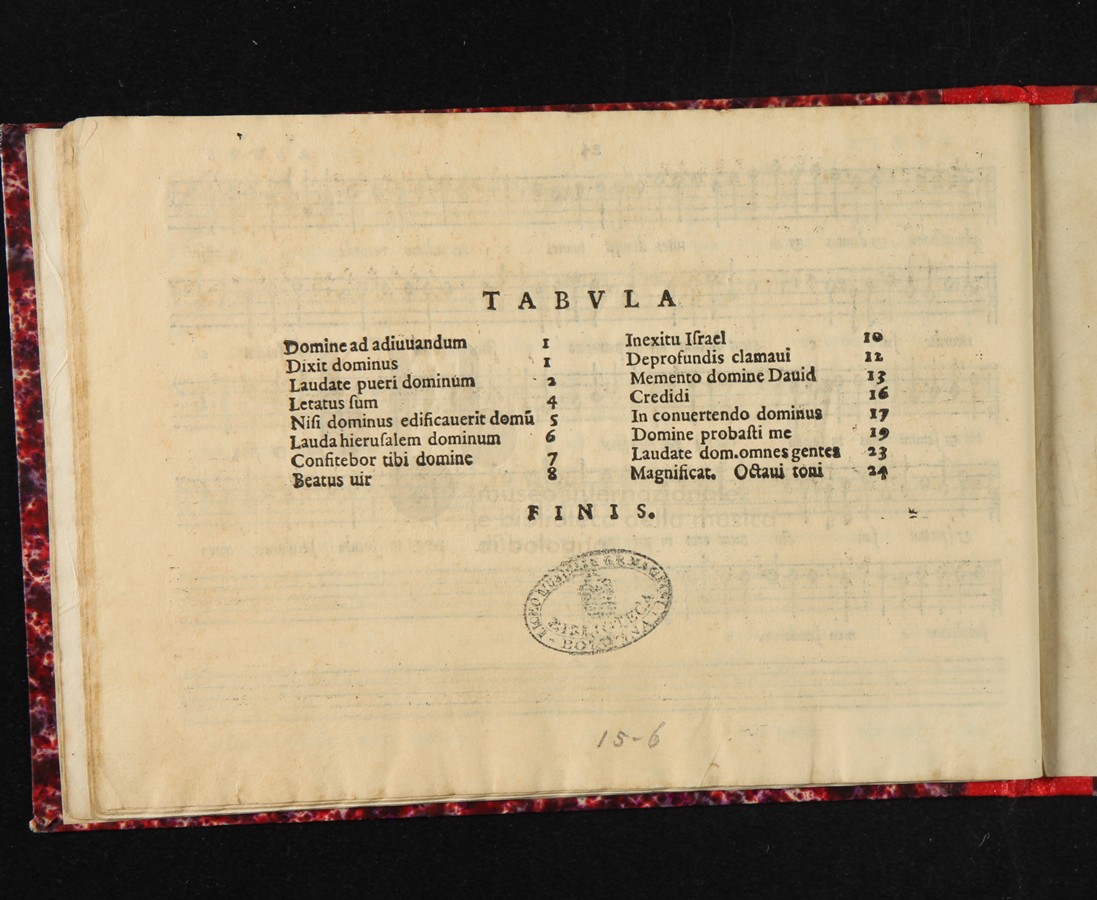 TABVLA
Domine ad adiuuandum 1
Dixit dominus 1
Laudate pueri dominum 2
Letatus ſum 4
Niſi dominus edificauerit domū 5
Lauda hieruſalem dominum 6
Confitebor tibi domine 7
Beatus uir 8
Inexitu Iſrael 10
Deprofundis clamaui 12
Memento domine Dauid 13
Credidi 16
In conuertendo dominus 17
Domine probaſti me 19
Laudate dom.omnes gentes 23
Magnificat. Octaui toni 24
FINIS.
museo internazionale
e biblioteca della musica
di bologna
BIBLIOTECA
BOLOGNA
15-6